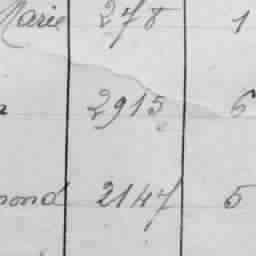 Marie 278 1
2915 6
2147 5